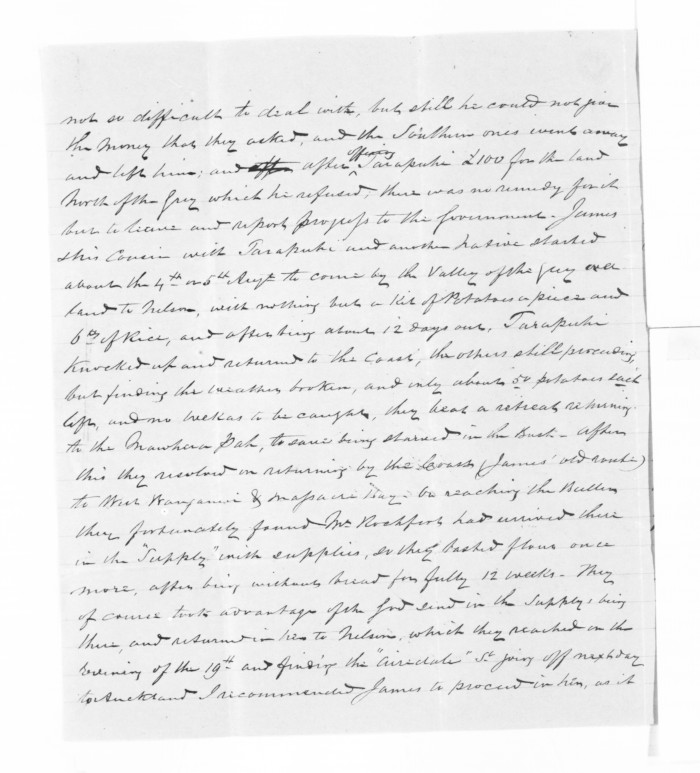 not so difficult to deal with, but still he could not give
the money that they asked, and the Southern ones went away
and left him; and after offering Tarapuhi £100 for the land
North of the Grey which he refused, there was no remedy for it
but to leave and report progress to the Government - James
& his Cousin with Tarapuhi and another Native started
about the 4th or 5th Augt to come by the Valley of the Grey over
land to Nelson, with nothing but a Kit of Potatoes a piece and
6 of Rice, and after being about 12 days out, Tarapuhi
Knocked up and returned to the Coast, the others still proceeding
but finding the weather broken, and only about 50 potatoes each
left, and no wekas to be caught, they beat a retreat returning
to the Mawhera Pah, to save being starved in the Bush - After
this they resolved on returning by the Coast (James' old route)
to West Wanganui & Massacre Bay - on reaching the Buller
they fortunately found Mr Rochfort had arrived there
in the "Supply" with supplies, so they tasted flour once
more, after being without bread for fully 12 weeks - They
of course took advantage of the God send in the Supply's being
there, and returned in her to Nelson, which they reached on the
Evening of the 19th and finding the "Airedale" St going off next day
to Auckland I recommended James to proceed in her, as it